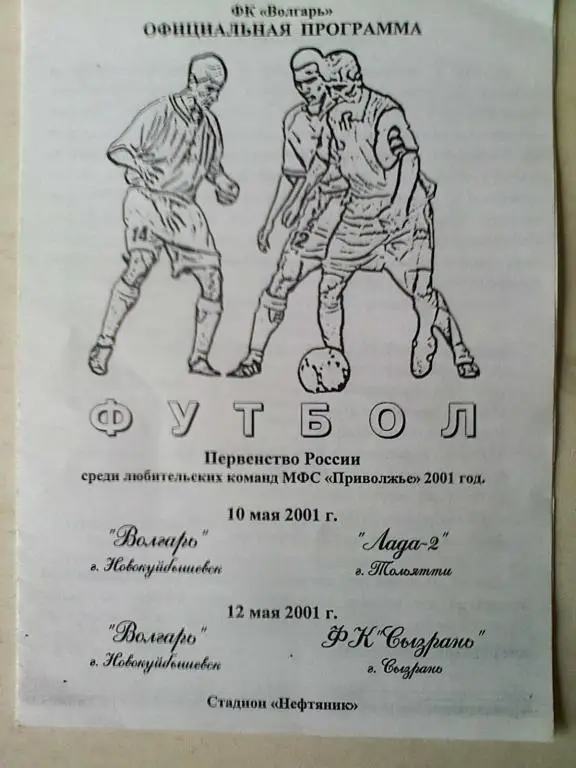 ФК «Волгарь»
ОФИЦИАЛЬНАЯ ПРОГРАММА
14
12
ФУТБОЛ
Первенство России
среди любительских команд МФС «Приволжье» 2001 год.
10 мая 2001 г.
"Волгарь" "Лада-2"
г. Новокуйбышевск г. Тольятти
12 мая 2001 г.
"Волгарь" ФК "Сызрань"
г. Новокуйбышевск г. Сызрань
Стадион «Нефтяник»